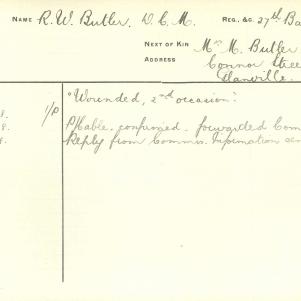 NAME R. W. Butler D.C.M. REG. &C. 27th Ba
NEXT OF KIN Mrs M. Butler
ADDRESS Connor Stree
"Wounded, 2nd occasion".
8. 1/P P/Cable. confirmed. forwarded Com
8. Reply from Commns.